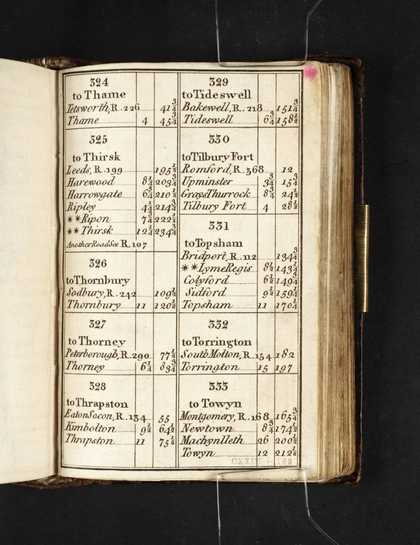 324
to Thame
Tetsworth, R. 226 41¾
Thame 4 45¾
325
to Thirsk
Leeds, R. 199 195½
Harewood 8¼ 203¾
Harrowgate 6¾ 210½
Ripley 4¼ 214¾
**Ripon 7¾ 222½
**Thirsk 12¼ 234¾
Another Road See R. 107
326
to Thornbury
Sodbury, R. 242 109½
Thornbury 11 120½
327
to Thorney
Peterborough, R. 290 77½
Thorney 6¼ 83¾
328
to Thrapston
Eaton Socon, R. 134 55
Kimbolton 9½ 64½
Thrapston 11 75½
329
to Tideswell
Bakewell, R. 218 151¾
Tideswell 6¾ 158½
330
to Tilbury Fort
Romford, R. 368 12
Upminster 3¾ 15¾
Grays Thurrock 8¾ 24½
Tilbury Fort 4 28½
331
to Topsham
Bridport, R. 112 134¾
**Lyme Regis 8½ 143¼
Colyford 6½ 149¾
Sidford 9½ 159¼
Topsham 11 170¼
332
to Torrington
South Molton, R. 154 182
Torrington 15 197
333
to Towyn
Montgomery, R. 168 165¾
Newtown 8¾ 174½
Machynlleth 26 200½
Towyn 12 212½